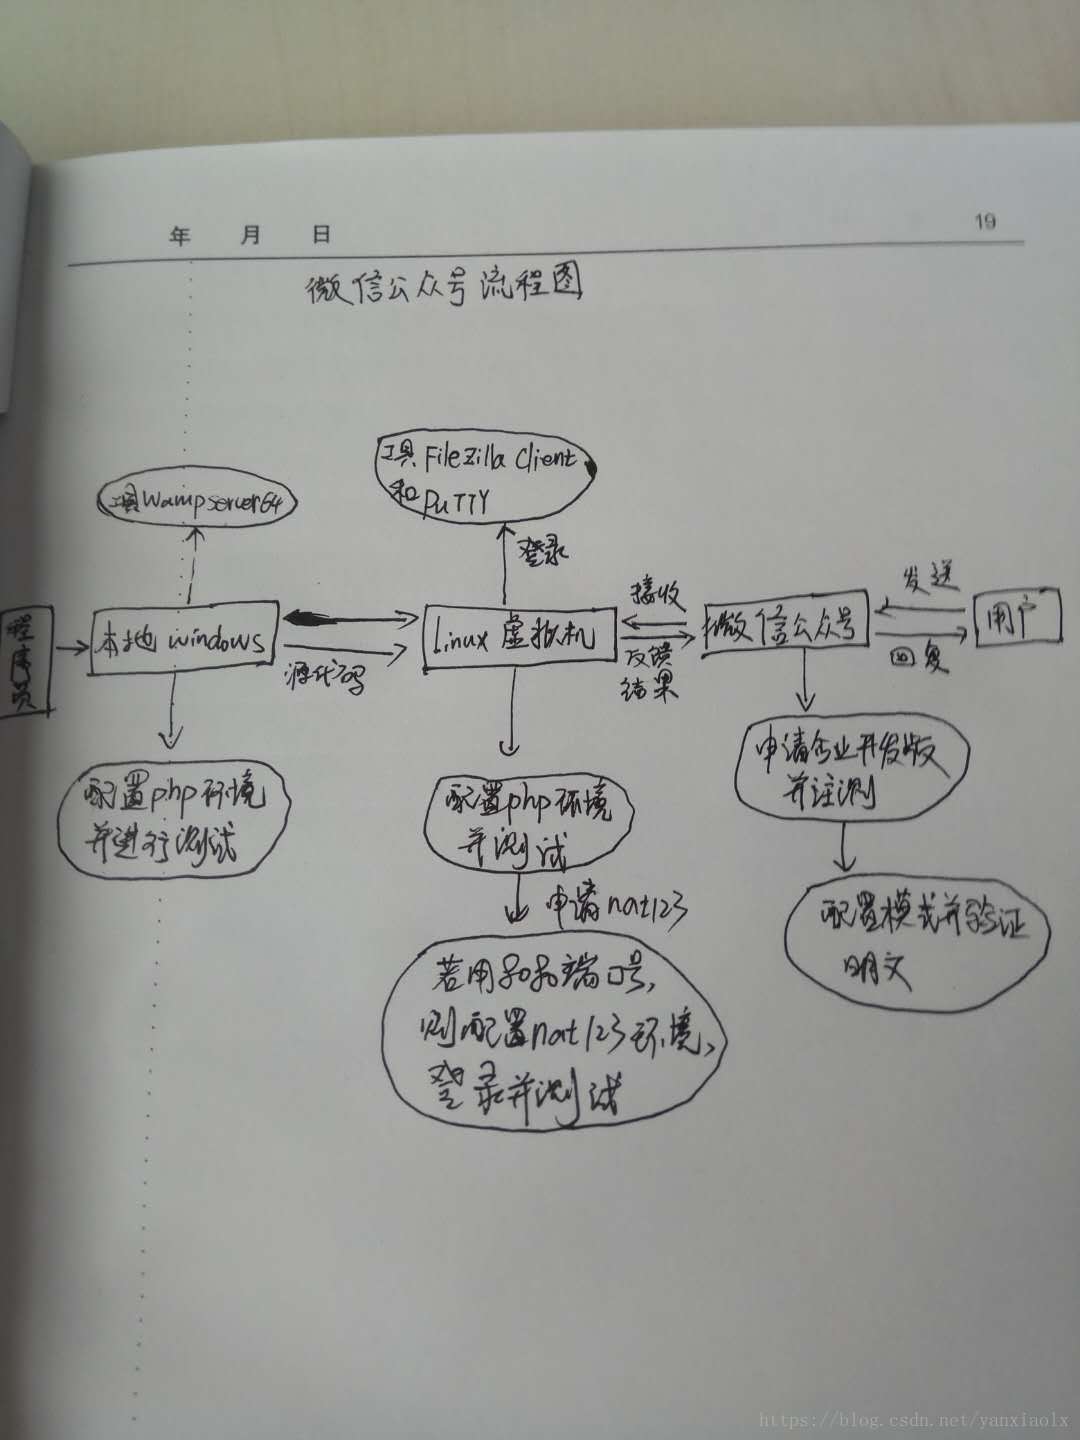 年 月 日
19
微信公众号流程图
工具Filezilla Client
和 PuTTY
工具Wampserver64
登录
程序员
本地windows
源代码
Linux虚拟机
接收
反馈
结果
微信公众号
发送
回复
用户
配置php环境
并进行测试
配置php环境
并测试
申请企业开发版
并注测
申请nat123
配置模式并验证
明文
若用8080端口号,
则配置nat123环境、
登录并测试
https://blog.csdn.net/yanxiaolx